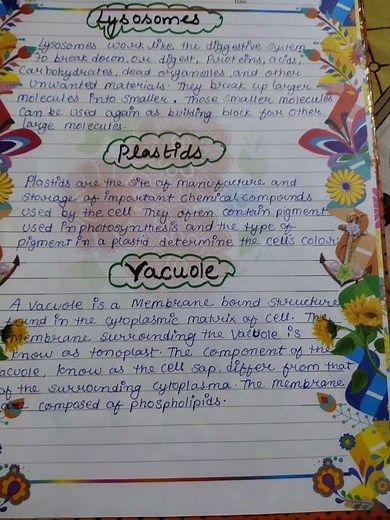 Lysosomes
Lysosomes work like the diggestive system
To break down, our digest, Proteins, acids,
Carbohydrates, dead organelles, and other
Unwanted materials. They break up larger
molecules into smaller. Those smaller molecules
Can be used again as building block for other
large molecules.
Plastids
Plastids are the site of manufacture and
Storage of important chemical compounds
used by the cell. They often contain pigment
used in photosynthesis and the type of
pigment in a plastid determine the cell's colour
Vacuole
A Vacuole is a Membrane bound structure
found in the cytoplasmic matrix of cell. The
Membrane surrounding the Vacuole is
know as tonoplast. The component of the
acuole, know as the cell sap, differ from that
of the surrounding cytoplasma. The membrane
are composed of phospholipids.